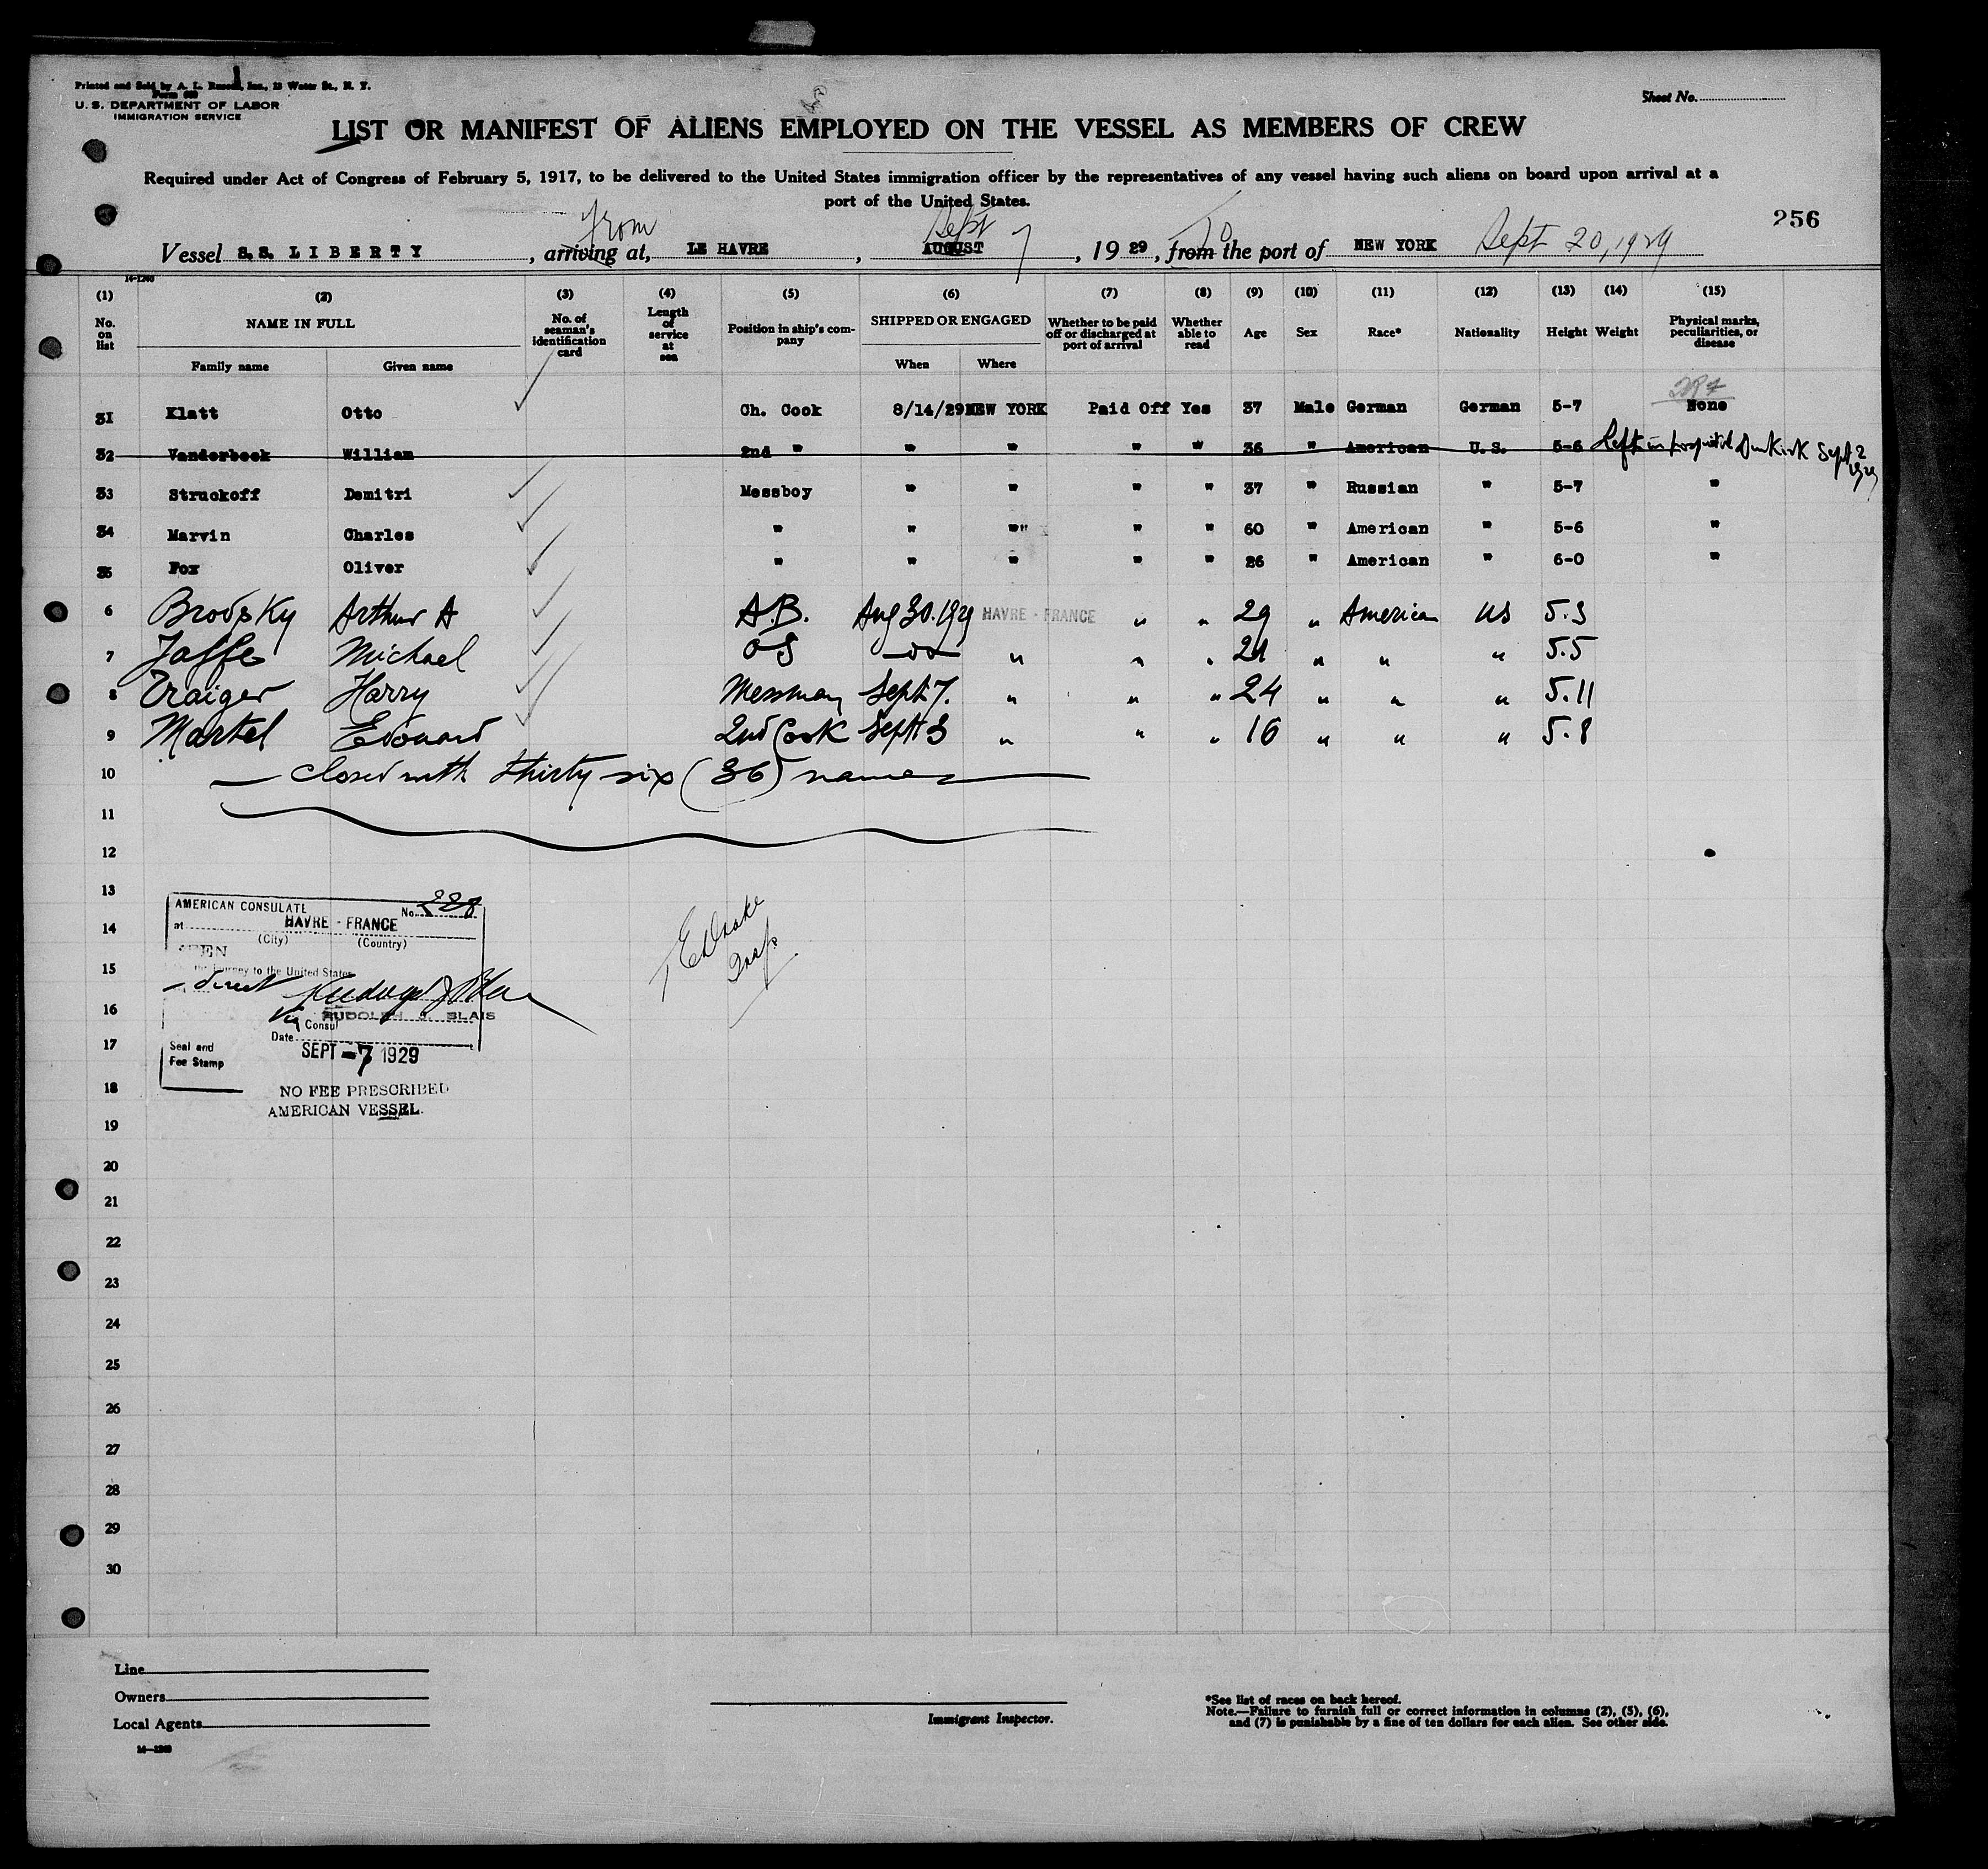 Printed and Sold by A. L. Russell, Inc., 13 Water St., N. Y.
U. S. DEPARTMENT OF LABOR
IMMIGRATION SERVICE
Sheet No.
LIST OR MANIFEST OF ALIENS EMPLOYED ON THE VESSEL AS MEMBERS OF CREW
Required under Act of Congress of February 5, 1917, to be delivered to the United States immigration officer by the representatives of any vessel having such aliens on board upon arrival at a
port of the United States.
256
from Sept 7 To
Vessel S.S. LIBERTY, arriving at, LE HAVRE, AUGUST, 1929, from the port of NEW YORK Sept 20, 1929
14-1240
(1) (2) (3) (4) (5) (6) (7) (8) (9) (10) (11) (12) (13) (14) (15)
No. on list NAME IN FULL No. of seaman's identification card Length of service at sea Position in ship's company SHIPPED OR ENGAGED Whether to be paid off or discharged at port of arrival Whether able to read Age Sex Race* Nationality Height Weight Physical marks, peculiarities, or disease
Family name Given name When Where
31 Klatt Otto Ch. Cook 8/14/29 NEW YORK Paid Off Yes 37 Male German German 5-7 None
32 Vanderbeek William 2nd " " " " " 36 " American U.S. 5-6 Left in hospital Dunkirk Sept 2 1929
33 Struckoff Demitri Messboy " " " " 37 " Russian " 5-7 "
34 Marvin Charles " " " " " 60 " American " 5-6 "
35 Fox Oliver " " " " " 26 " American " 6-0 "
6 Brodsky Arthur A A.B. Aug 30. 1929 HAVRE - FRANCE " " 29 " American US 5.3
7 Jaffe Michael OS -do- " " " 21 " " " 5.5
8 Traiger Harry Messman Sept 7. " " " 24 " " " 5.11
9 Martel Edouard 2nd Cook Sept 3 " " " 16 " " " 5.8
10 Closed with thirty six (36) names
11
12
13
14
15
16
17
18
19
20
21
22
23
24
25
26
27
28
29
30
AMERICAN CONSULATE No. 228
at HAVRE - FRANCE
(City) (Country)
journey to the United States
direct
RUDOLPH J. BLAIS
Consul
Date SEPT -7 1929
Seal and
Fee Stamp
NO FEE PRESCRIBED
AMERICAN VESSEL.
Line
Owners
Local Agents
Immigrant Inspector.
*See list of races on back hereof.
Note.—Failure to furnish full or correct information in columns (2), (5), (6),
and (7) is punishable by a fine of ten dollars for each alien. See other side.